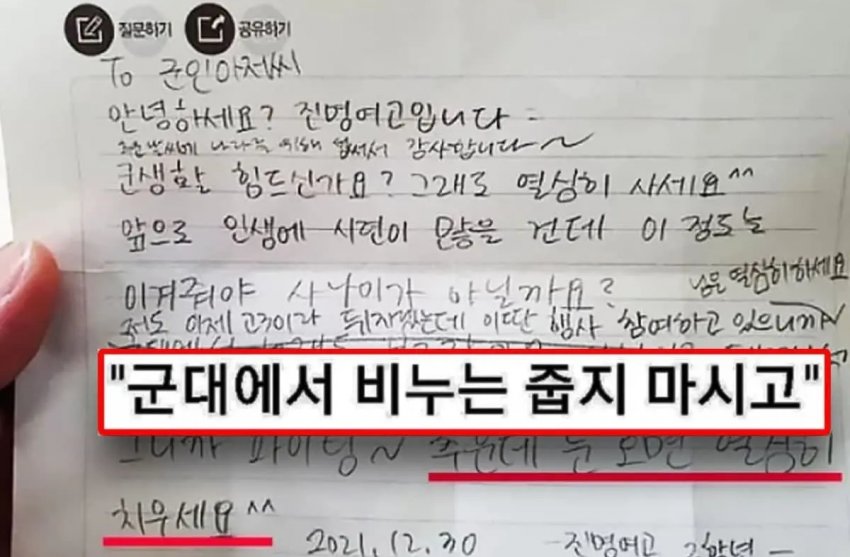 질문하기 공유하기
To 군인아저씨
안녕하세요? 진명여고입니다
추운 날씨에 나라를 위해 감사합니다~
군생활 힘드신가요? 그래도 열심히 사세요^^
앞으로 인생에 시련이 많을 건데 이 정도는
이겨줘야 사나이가 아닐까요?
눈은 열심히하세요
저도 이제 고3이라 뒤지겠는데 이딴 행사 참여하고 있으니까~
"군대에서 비누는 줍지 마시고"
그니까 파이팅~ 추운데 눈 오면 열심히
치우세요^^
2021.12.30 -진명여고 2학년-